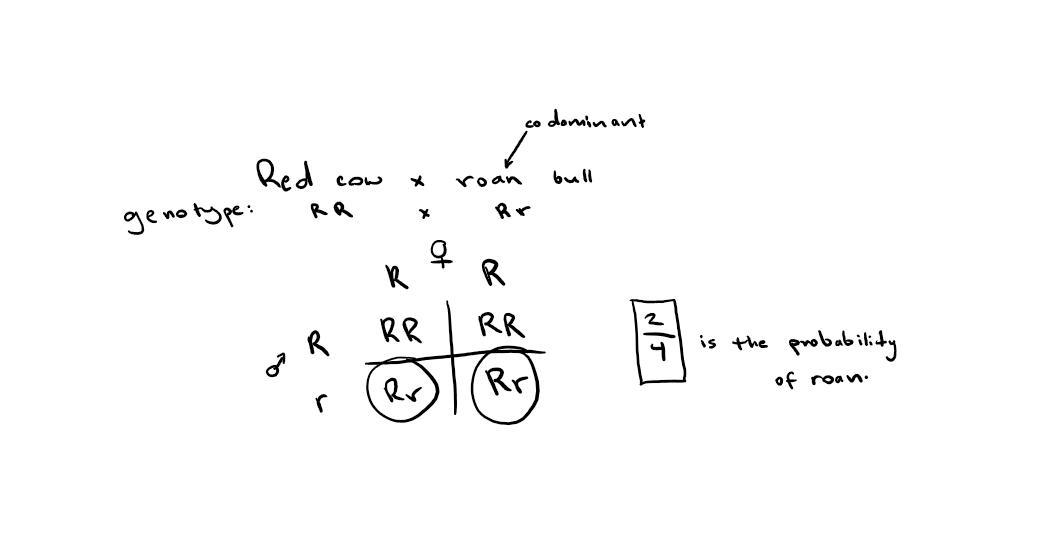 codominant
Red cow x roan bull
genotype: RR x Rr
♀
R R
R RR RR
♂
r Rr Rr
2/4 is the probability
of roan.